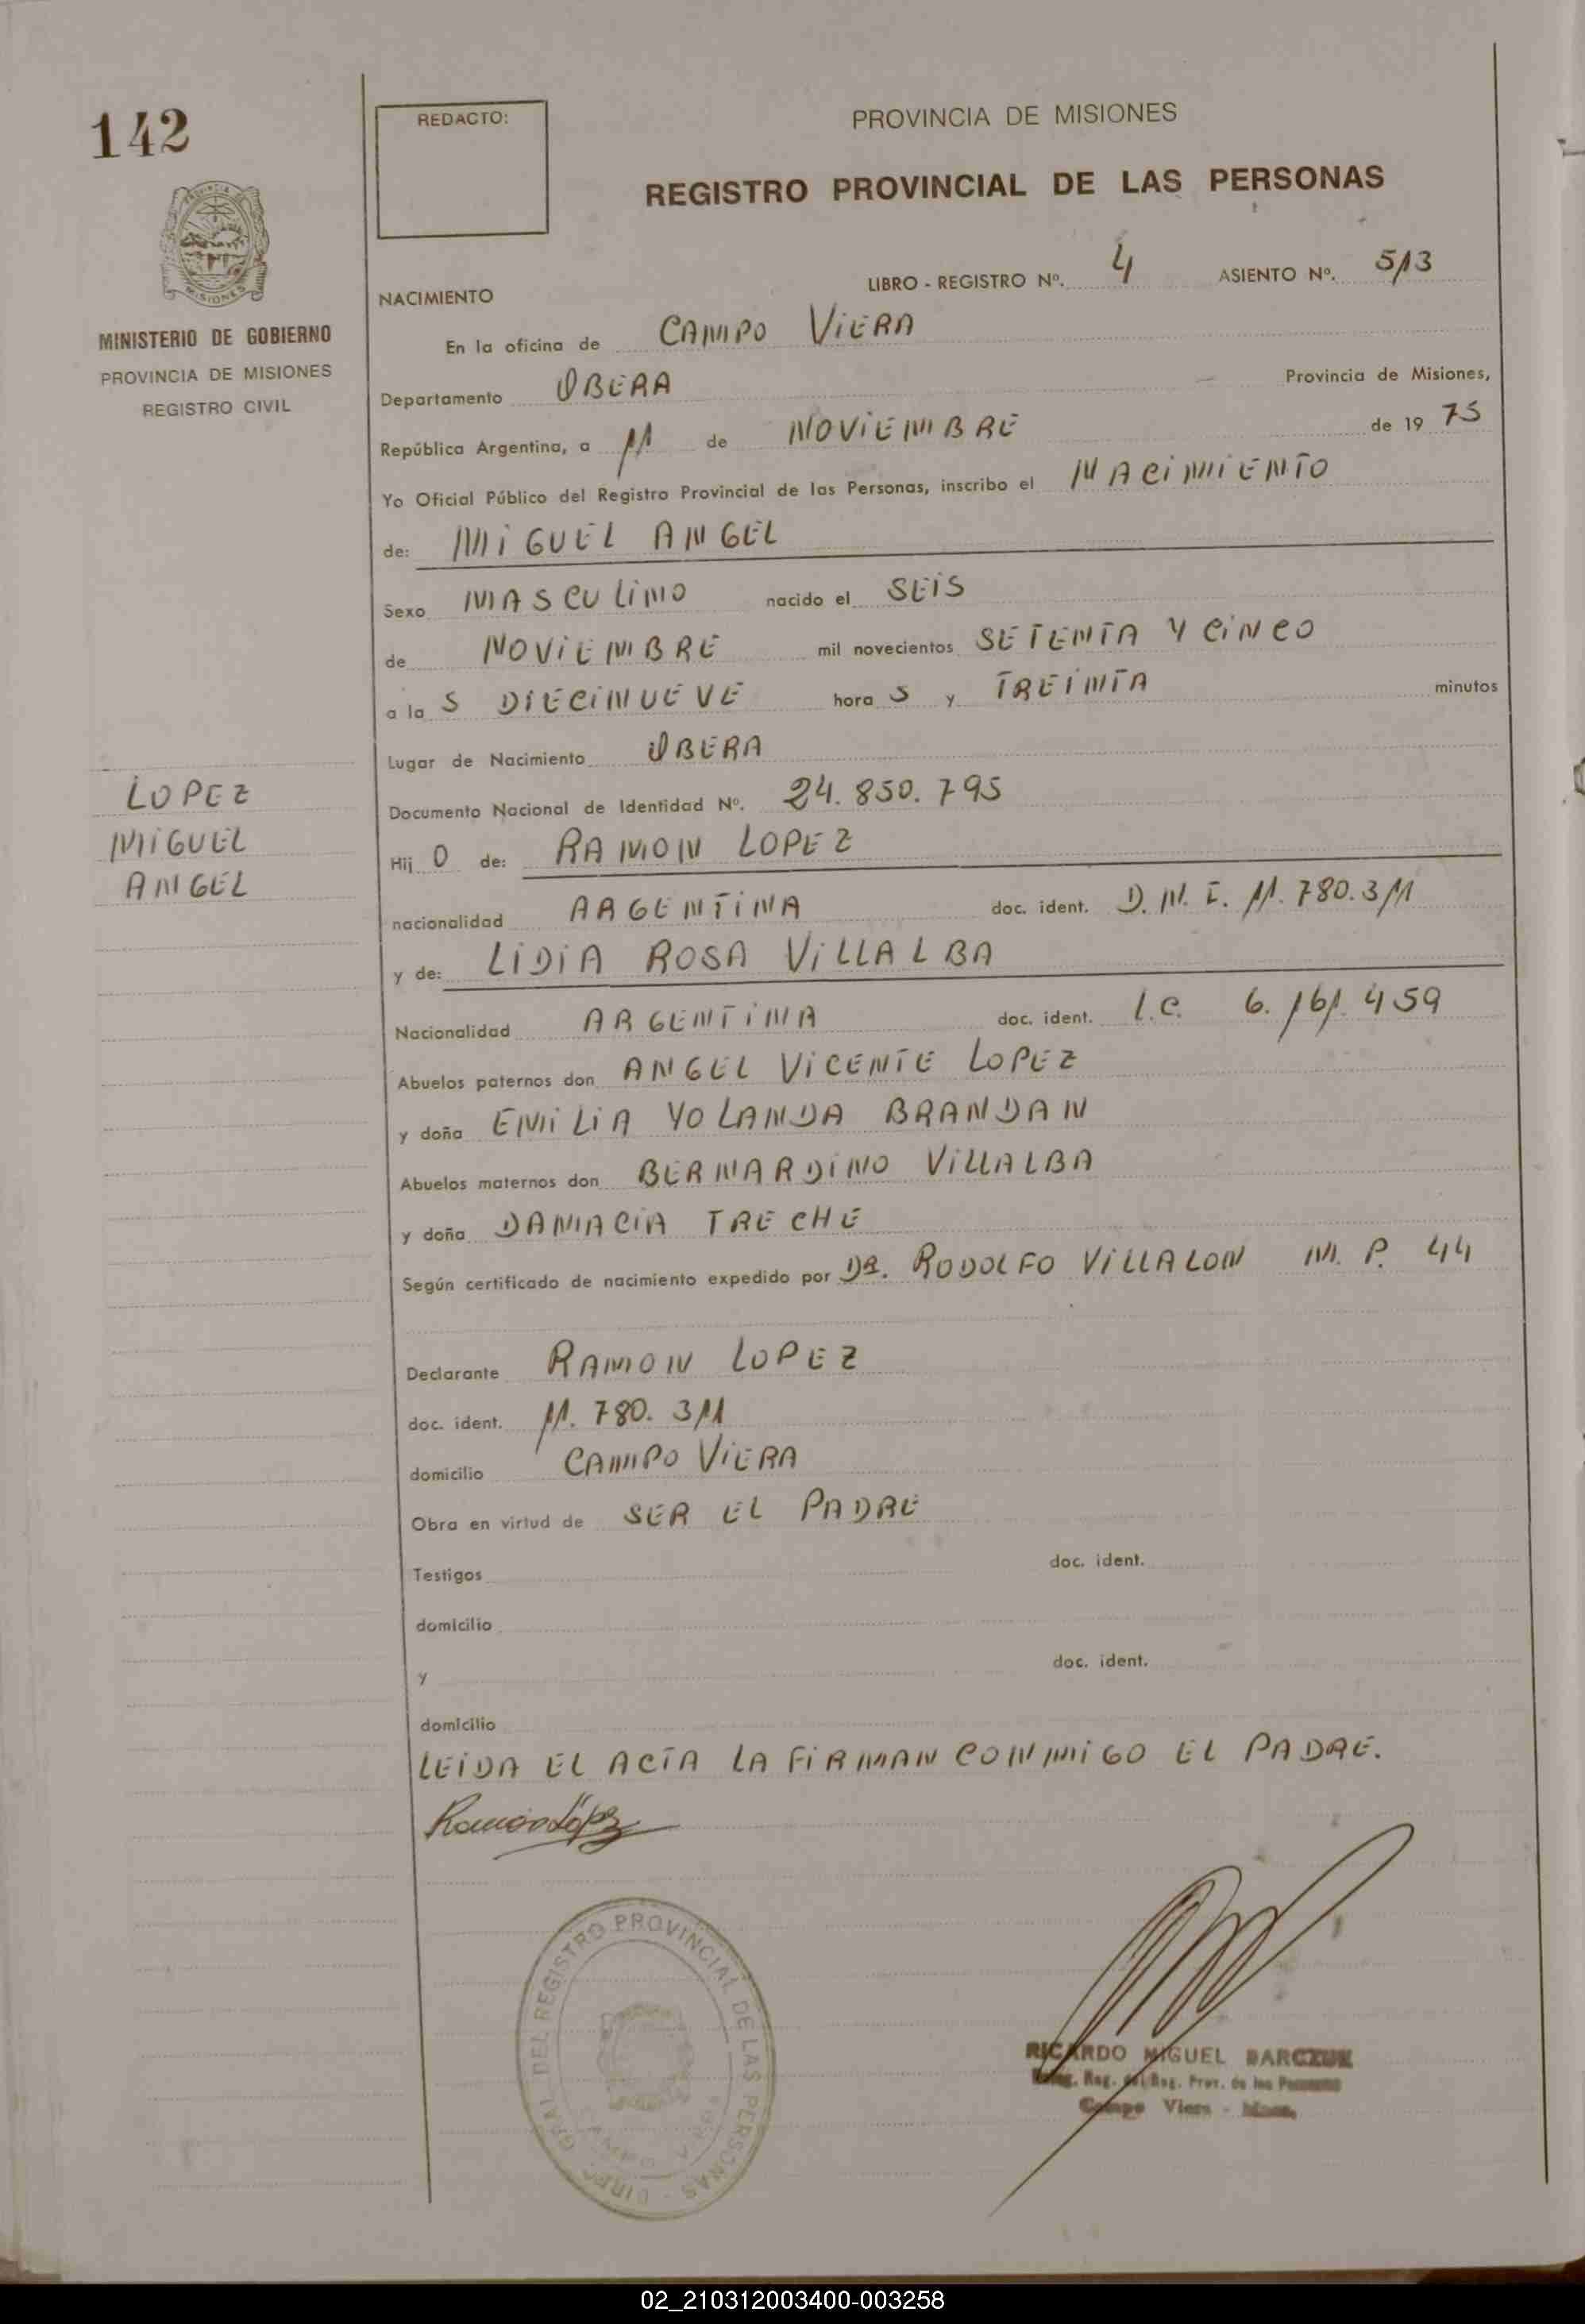 142
REDACTO:
PROVINCIA DE MISIONES
REGISTRO PROVINCIAL DE LAS PERSONAS
MISIONES
MINISTERIO DE GOBIERNO
PROVINCIA DE MISIONES
REGISTRO CIVIL
LIBRO - REGISTRO Nº. 4 ASIENTO Nº. 513
NACIMIENTO
En la oficina de CAMPO VIERA
Departamento OBERA Provincia de Misiones,
República Argentina, a 11 de NOVIEMBRE de 19 75
Yo Oficial Público del Registro Provincial de las Personas, inscribo el NACIMIENTO
de: MIGUEL ANGEL
Sexo MASCULINO nacido el SEIS
de NOVIEMBRE mil novecientos SETENTA Y CINCO
a la S DIECINUEVE hora S y TREINTA minutos
Lugar de Nacimiento OBERA
LOPEZ
MIGUEL
ANGEL
Documento Nacional de Identidad Nº. 24.850.795
Hij O de: RAMON LOPEZ
nacionalidad ARGENTINA doc. ident. D.N.I. 11.780.311
y de: LIDIA ROSA VILLALBA
Nacionalidad ARGENTINA doc. ident. L.C. 6.161.459
Abuelos paternos don ANGEL VICENTE LOPEZ
y doña EMILIA YOLANDA BRANDAN
Abuelos maternos don BERNARDINO VILLALBA
y doña DAMACIA TRECHE
Según certificado de nacimiento expedido por DR. RODOLFO VILLALON M.P. 44
Declarante RAMON LOPEZ
doc. ident. 11.780.311
domicilio CAMPO VIERA
Obra en virtud de SER EL PADRE
Testigos doc. ident.
domicilio
y doc. ident.
domicilio
LEIDA EL ACTA LA FIRMAN CONMIGO EL PADRE.
Ramón López
DIREC. GRAL DEL REGISTRO PROVINCIAL DE LAS PERSONAS
RICARDO MIGUEL BARCZUK
Reg. del Reg. Prov. de las Personas
Campo Viera - Mnes.
02_210312003400-003258